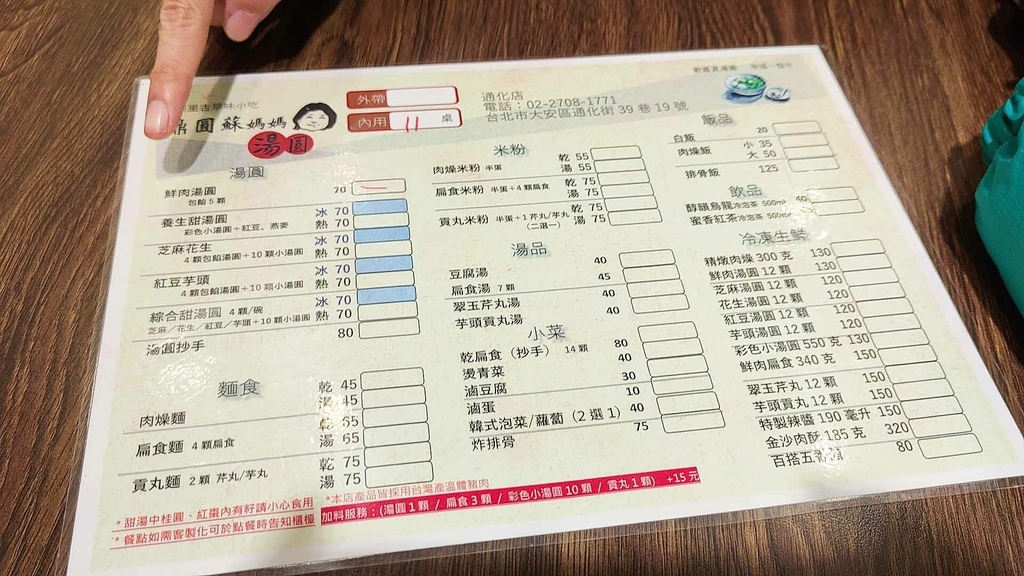 里古早味小吃
鼎圓蘇媽媽
湯圓
外帶
內用 11 桌
通化店
電話：02-2708-1771
台北市大安區通化街 39 巷 19 號
湯圓
鮮肉湯圓 70
包餡 5 顆
養生甜湯圓 冰 70
彩色小湯圓＋紅豆、燕麥 熱 70
芝麻花生 冰 70
4 顆包餡湯圓＋10 顆小湯圓 熱 70
紅豆芋頭 冰 70
4 顆包餡湯圓＋10 顆小湯圓 熱 70
綜合甜湯圓 4 顆/碗 冰 70
芝麻／花生／紅豆／芋頭＋10 顆小湯圓 熱 70
湯圓抄手 80
麵食
肉燥麵 乾 45
湯 45
扁食麵 4 顆扁食 乾 65
湯 65
貢丸麵 2 顆 芹丸/芋丸 乾 75
湯 75
米粉
肉燥米粉 半蛋 乾 55
湯 55
扁食米粉 半蛋＋4 顆扁食 乾 75
湯 75
貢丸米粉 半蛋＋1 芹丸/芋丸 乾 75
(二選一) 湯 75
湯品
豆腐湯 40
扁食湯 7 顆 45
翠玉芹丸湯 40
芋頭貢丸湯 40
小菜
乾扁食（抄手） 14 顆 80
燙青菜 40
滷豆腐 30
滷蛋 10
韓式泡菜/蘿蔔（2 選 1） 40
炸排骨 75
飯品
白飯 20
肉燥飯 小 35
大 50
排骨飯 125
飲品
醇韻烏龍 冷泡茶 500ml 40
蜜香紅茶 冷泡茶 500ml
冷凍生鮮
精燉肉燥 300 克 130
鮮肉湯圓 12 顆 130
芝麻湯圓 12 顆 120
花生湯圓 12 顆 120
紅豆湯圓 12 顆 120
芋頭湯圓 12 顆 120
彩色小湯圓 550 克 130
鮮肉扁食 340 克 150
翠玉芹丸 12 顆 150
芋頭貢丸 12 顆 150
特製辣醬 190 毫升 150
金沙肉酥 185 克 320
百搭五 80
*甜湯中桂圓、紅棗內有籽請小心食用
*餐點如需客製化可於點餐時告知櫃檯
*本店產品皆採用台灣產溫體豬肉
加料服務：(湯圓 1 顆 / 扁食 3 顆 / 彩色小湯圓 10 顆 / 貢丸 1 顆) +15 元